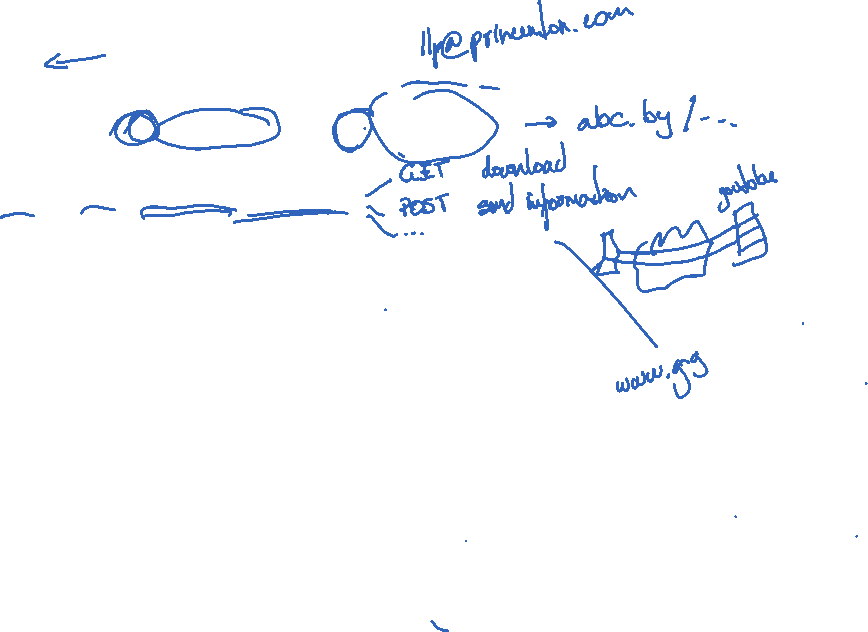 llp@princeton.com
→ abc.by/...
GET download
POST send information
...
youtube
www.